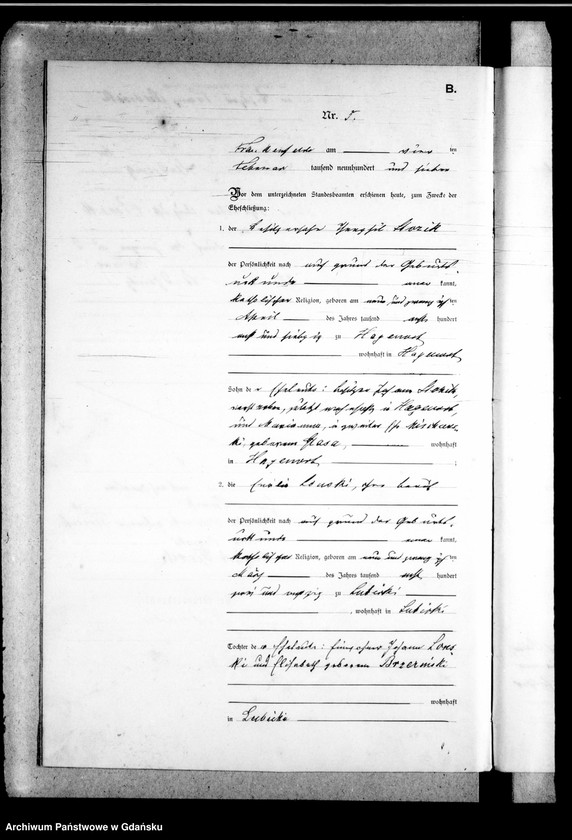 B.
Nr. 5.
Frankenfelde am vier ten
Februar tausend neunhundert und sieben
Vor dem unterzeichneten Standesbeamten erschienen heute, zum Zwecke der
Eheschließung:
1. der Besitzersohn Theophil Stozik
der Persönlichkeit nach auf Grund der Geburts-
urkunde aner kannt,
katholischer Religion, geboren am neun und zwanzigsten
April des Jahres tausend acht hundert
acht und siebzig zu Hagenort
wohnhaft in Hagenort
Sohn der Eheleute: Besitzer Johann Stozik,
verstorben, zuletzt wohnhaft in Hagenort,
und Marianna,
geborene Glasa, wohnhaft
in Hagenort ;
2. die Emilie Lonski, ohne Beruf
der Persönlichkeit nach auf Grund der Geburts-
urkunde aner kannt,
katholischer Religion, geboren am neun und zwanzigsten
März des Jahres tausend acht hundert
zu Lubicki
, wohnhaft in Lubicki
Tochter der Eheleute: Einwohner Johann Lons-
ki und Elisabeth geborene Brzezinski
wohnhaft
in Lubicki
Archiwum Państwowe w Gdańsku